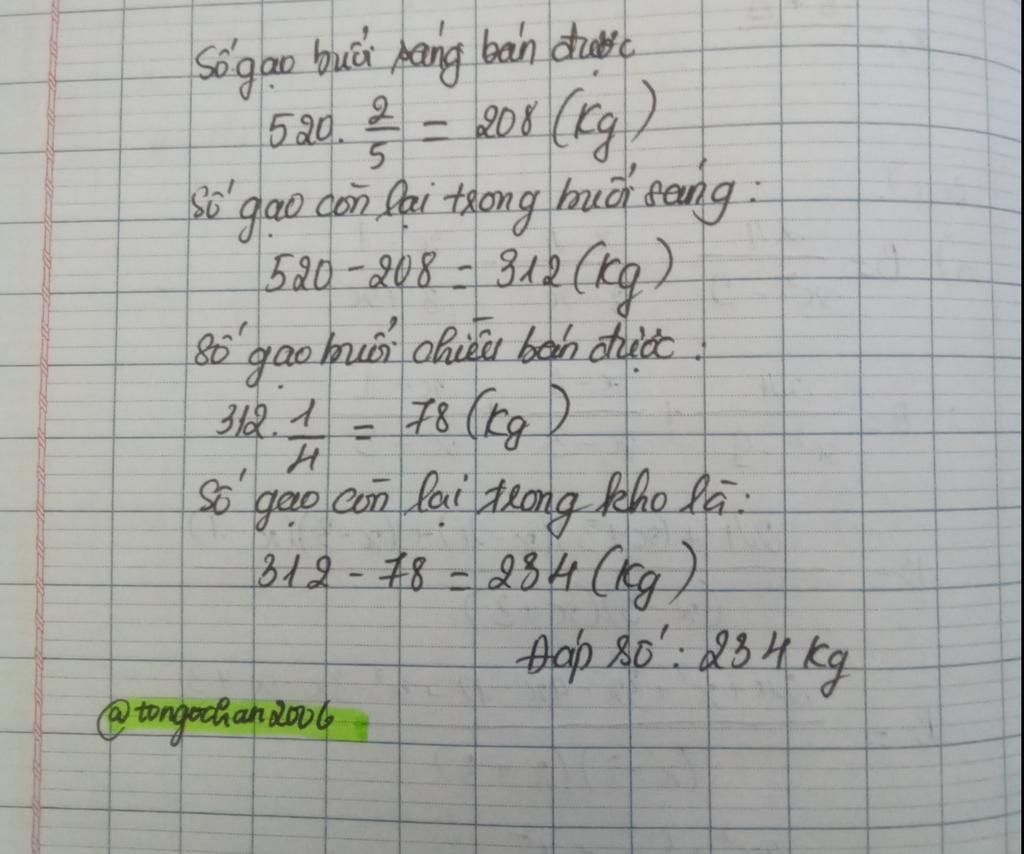 Số gạo buổi sáng bán được
520. 2/5 = 208 (kg)
Số gạo còn lại trong buổi sáng:
520 - 208 = 312 (kg)
Số gạo buổi chiều bán được:
312. 1/4 = 78 (kg)
Số gạo còn lại trong kho là:
312 - 78 = 234 (kg)
Đáp số: 234 kg
@tongochan2006